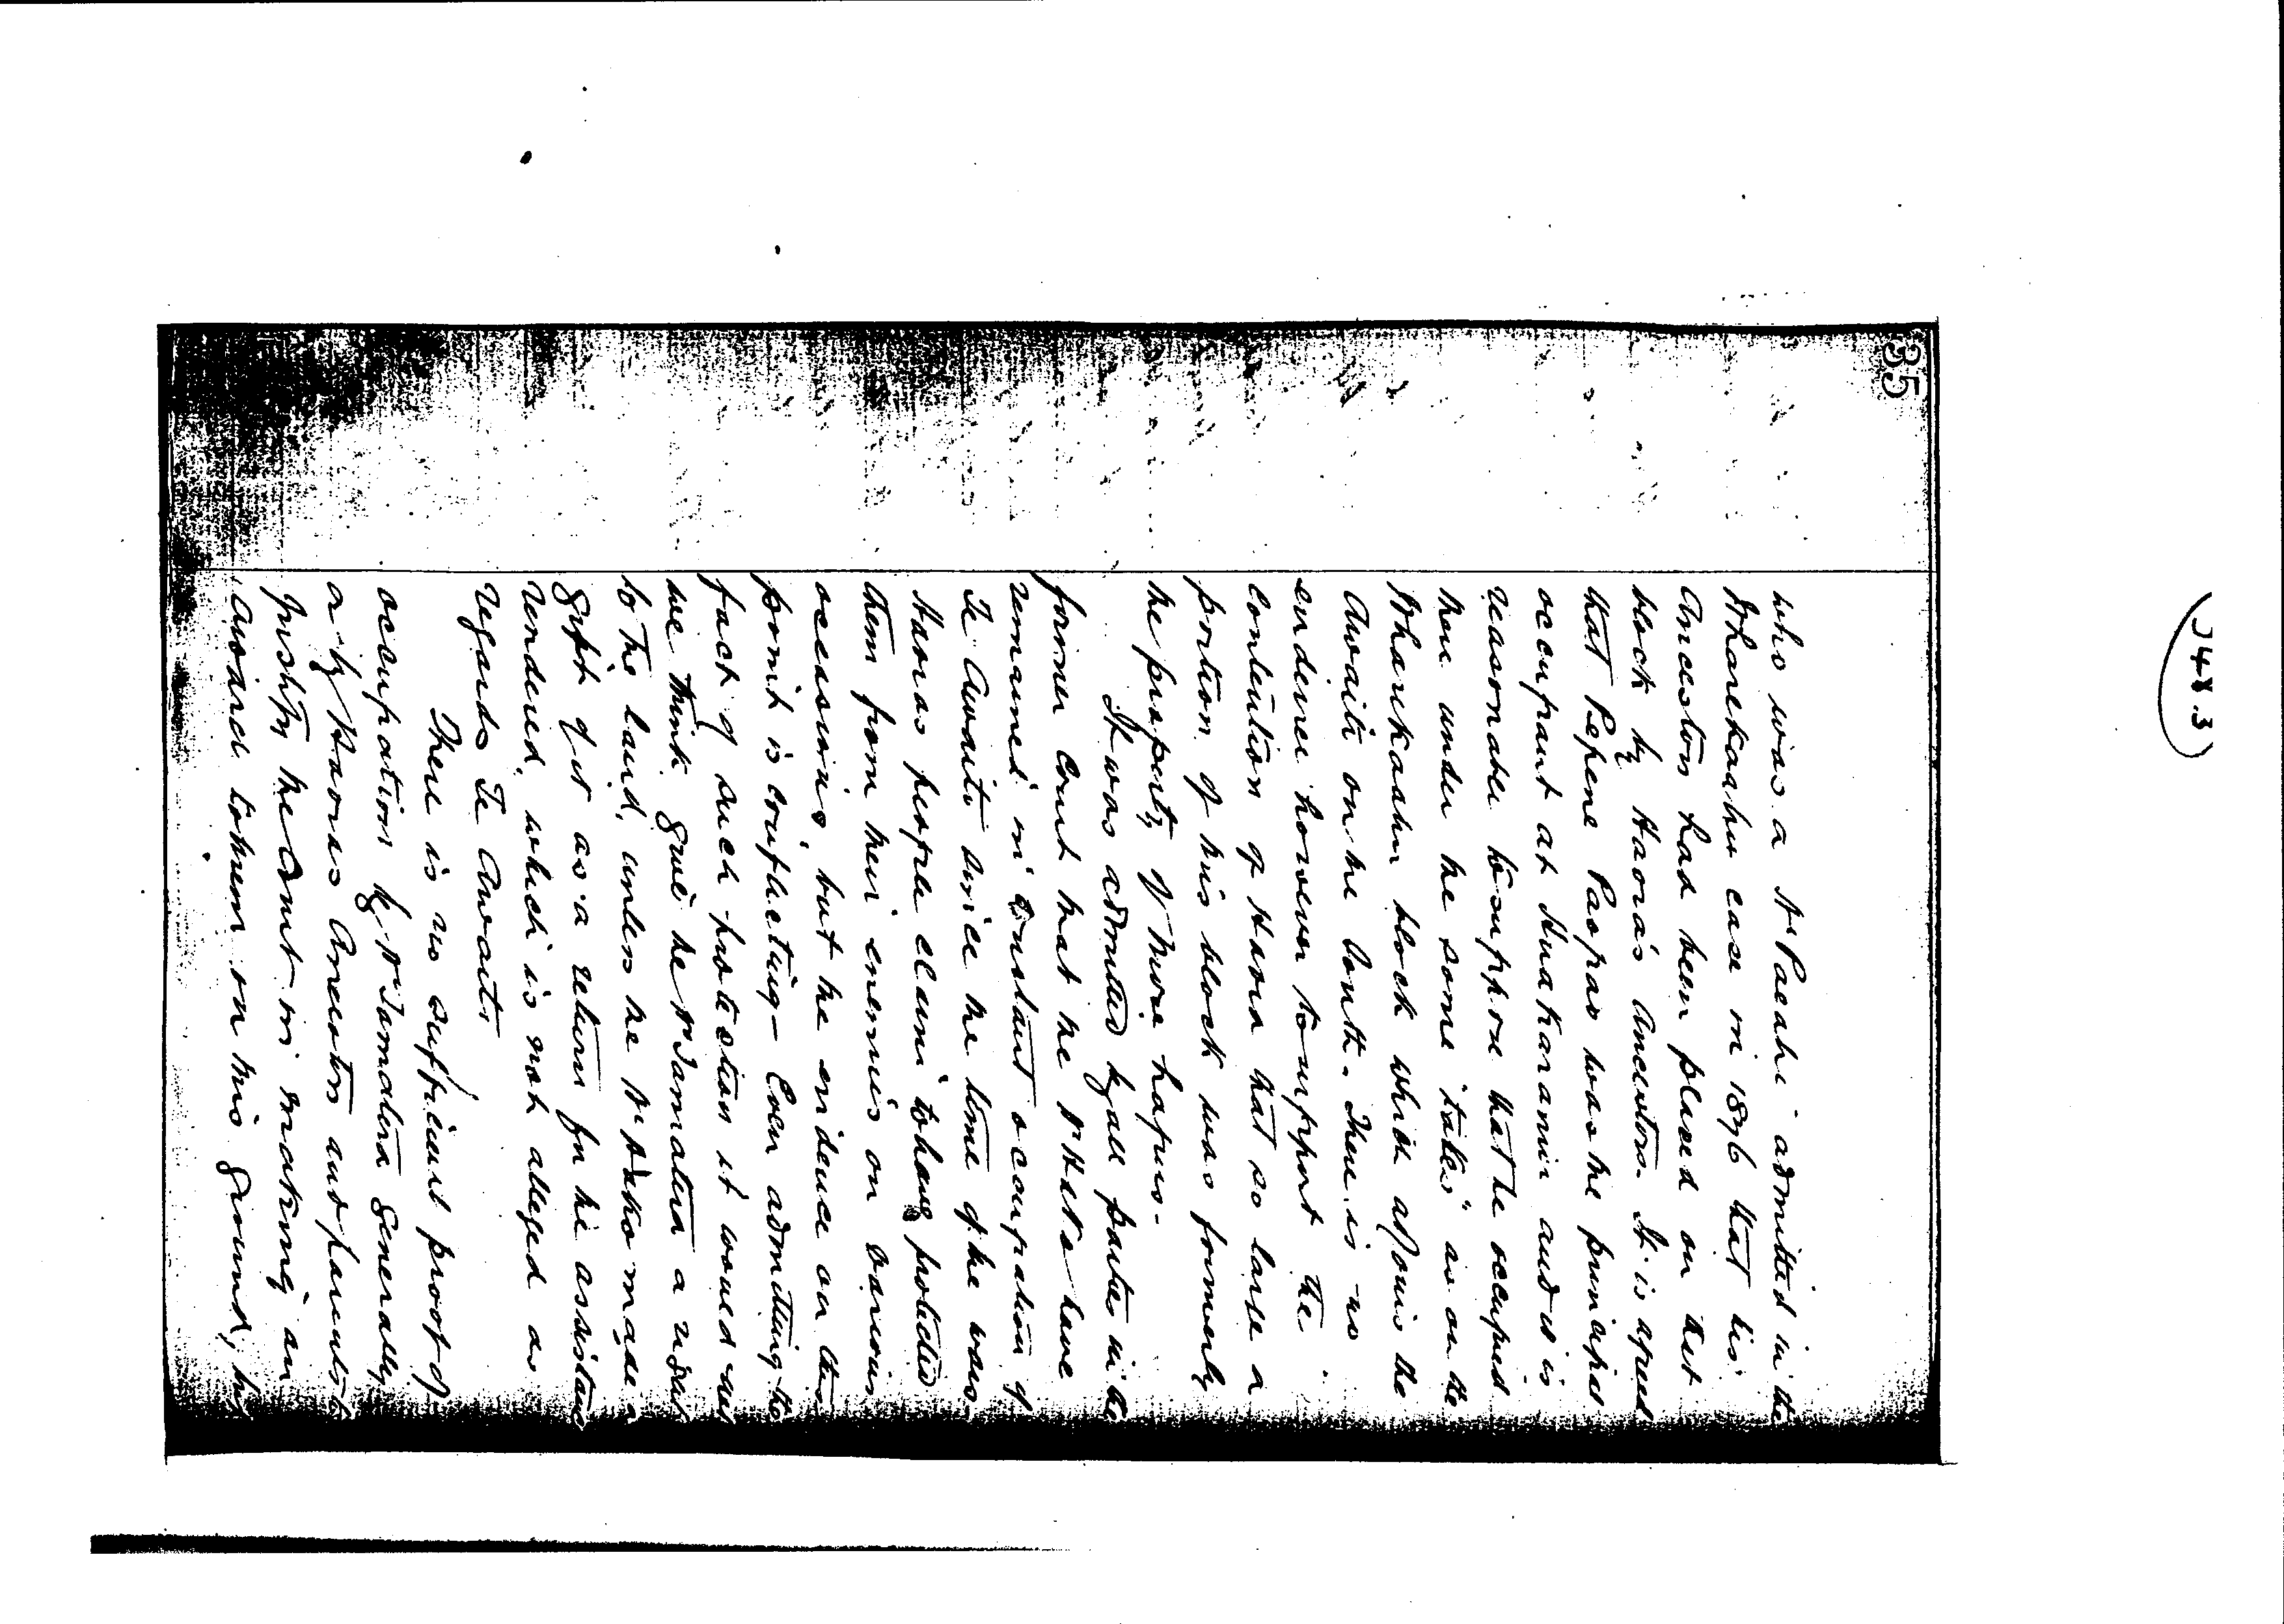 35
who was a N' Paeahi admitted in the
Wharekaahu case in 1896 that his
Ancestors had been placed on that
block by Haora's Ancestors. It is agreed
that Pepene Paopao was the principal
occupant at Huakaramir and it is
reasonable to suppose that he occupied
then under the same "take" as on the
Wharekaahu block which adjoins the
Awaiti on the South. There is no
evidence however to support the
contention of Haora that so large a
portion of this block was formerly
the property of those hapus.
It was admitted by all parties in the
former Court that the N'Hako have
remained in constant occupation of
Te Awaiti since the time of the wars,
Haoras people claim to have protected
them from their enemies on various
occasions, but the evidence on this
point is conflicting - Even admitting the
fact of such protection it would not
we think give the N'Tamatera a right
to the land, unless the N'Hako made a
gift of it as a return for the assistance
rendered, which is not alleged as
regards Te Awaiti
There is no sufficient proof of
occupation by N'Tamatera generally
or by Haoras Ancestors and parents to
justify the Court in making an
award to them on this ground, his
(J48.3)